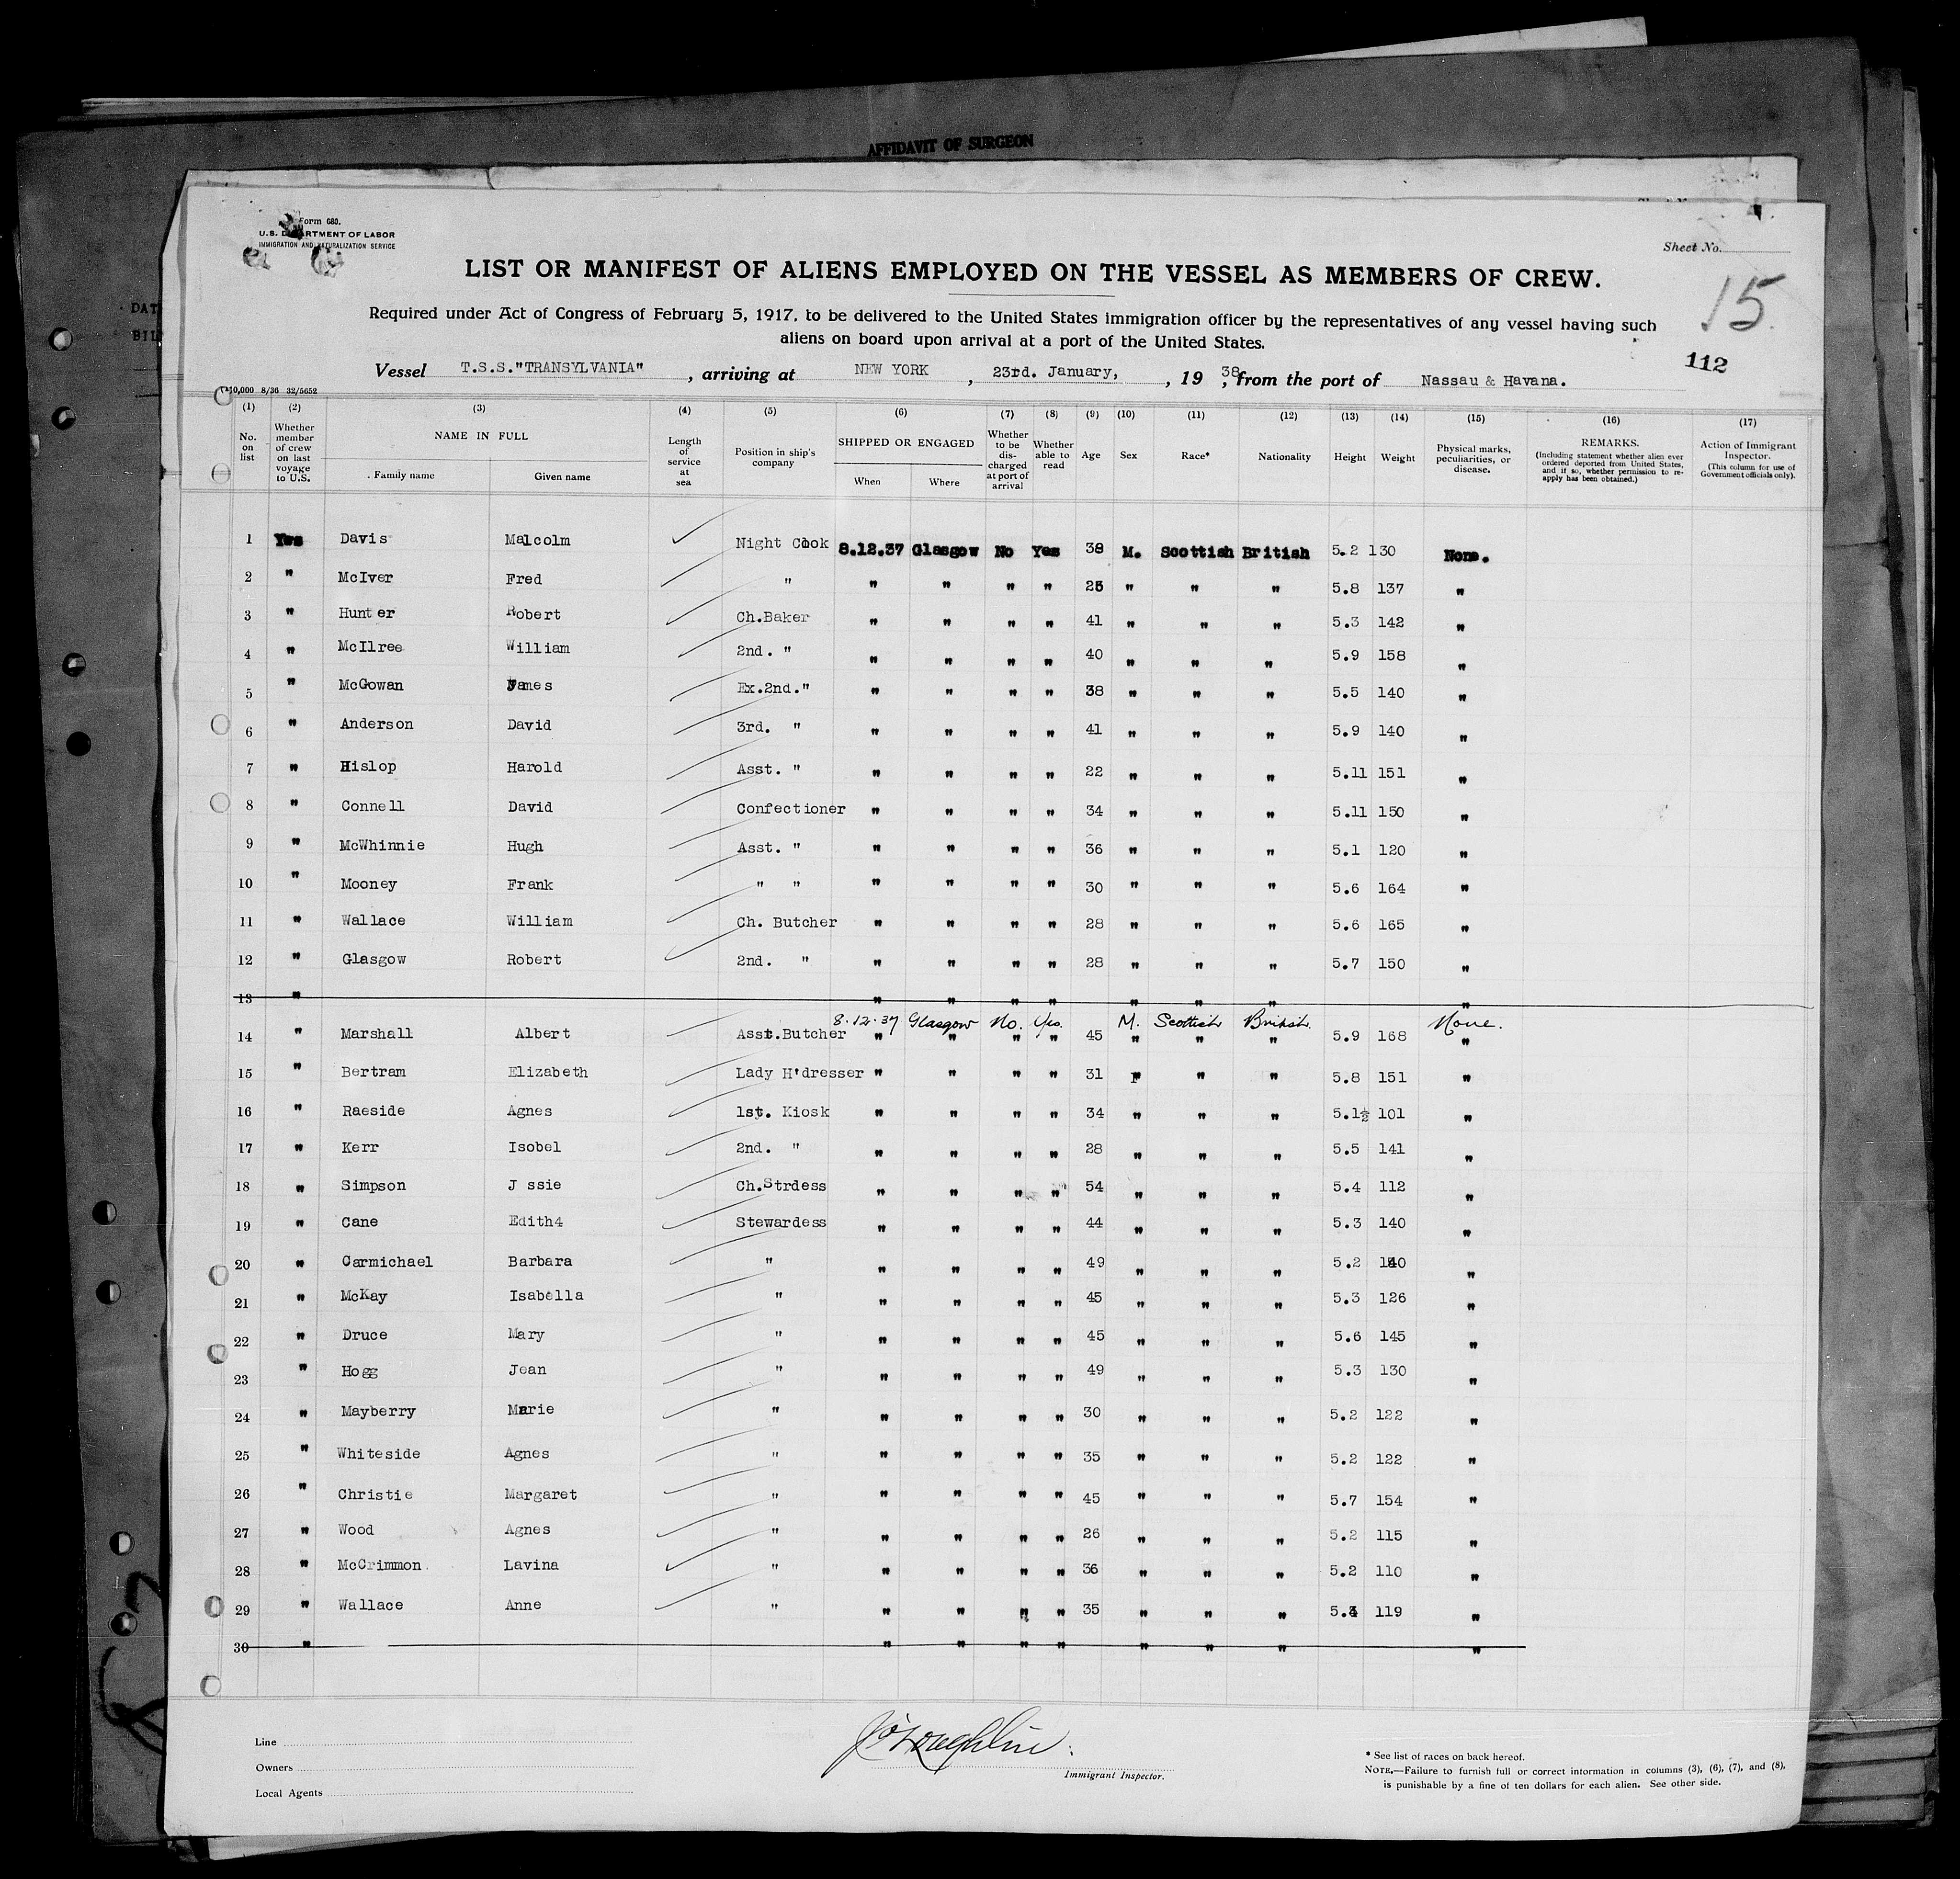 AFFIDAVIT OF SURGEON
DAT
BIL
Form 680.
U.S. DEPARTMENT OF LABOR
IMMIGRATION AND NATURALIZATION SERVICE
Sheet No.
LIST OR MANIFEST OF ALIENS EMPLOYED ON THE VESSEL AS MEMBERS OF CREW.
15
Required under Act of Congress of February 5, 1917, to be delivered to the United States immigration officer by the representatives of any vessel having such
aliens on board upon arrival at a port of the United States.
112
Vessel T.S.S."TRANSYLVANIA" , arriving at NEW YORK , 23rd. January, , 19 38, from the port of Nassau & Havana.
10,000 8/36 32/5652
(1) (2) (3) (4) (5) (6) (7) (8) (9) (10) (11) (12) (13) (14) (15) (16) (17)
No. on list
Whether member of crew on last voyage to U.S.
NAME IN FULL
Family name Given name
Length of service at sea
Position in ship's company
SHIPPED OR ENGAGED
When Where
Whether to be discharged at port of arrival
Whether able to read
Age Sex Race* Nationality Height Weight
Physical marks, peculiarities, or disease.
REMARKS.
(Including statement whether alien ever ordered deported from United States, and if so, whether permission to reapply has been obtained.)
Action of Immigrant Inspector.
(This column for use of Government officials only).
1 Yes Davis Malcolm Night Cook 8.12.37 Glasgow No Yes 38 M. Scottish British 5.2 130 None.
2 " McIver Fred " " " " " 25 " " " 5.8 137 "
3 " Hunter Robert Ch.Baker " " " " 41 " " " 5.3 142 "
4 " McIlree William 2nd. " " " " " 40 " " " 5.9 158 "
5 " McGowan James Ex.2nd." " " " " 38 " " " 5.5 140 "
6 " Anderson David 3rd. " " " " " 41 " " " 5.9 140 "
7 " Hislop Harold Asst. " " " " " 22 " " " 5.11 151 "
8 " Connell David Confectioner " " " " 34 " " " 5.11 150 "
9 " McWhinnie Hugh Asst. " " " " " 36 " " " 5.1 120 "
10 " Mooney Frank " " " " " " 30 " " " 5.6 164 "
11 " Wallace William Ch. Butcher " " " " 28 " " " 5.6 165 "
12 " Glasgow Robert 2nd. " " " " " 28 " " " 5.7 150 "
13 " " " " " " " " "
8.12.37 Glasgow No. Yes. M. Scottish British. None.
14 " Marshall Albert Asst.Butcher " " " " 45 " " " 5.9 168 "
15 " Bertram Elizabeth Lady H'dresser " " " " 31 F " " 5.8 151 "
16 " Raeside Agnes 1st. Kiosk " " " " 34 " " " 5.1½ 101 "
17 " Kerr Isobel 2nd. " " " " " 28 " " " 5.5 141 "
18 " Simpson J ssie Ch.Strdess " " " " 54 " " " 5.4 112 "
19 " Cane Edith4 Stewardess " " " " 44 " " " 5.3 140 "
20 " Carmichael Barbara " " " " " 49 " " " 5.2 "
21 " McKay Isabella " " " " " 45 " " " 5.3 126 "
22 " Druce Mary " " " " " 45 " " " 5.6 145 "
23 " Hogg Jean " " " " " 49 " " " 5.3 130 "
24 " Mayberry Marie " " " " " 30 " " " 5.2 122 "
25 " Whiteside Agnes " " " " " 35 " " " 5.2 122 "
26 " Christie Margaret " " " " " 45 " " " 5.7 154 "
27 " Wood Agnes " " " " " 26 " " " 5.2 115 "
28 " McCrimmon Lavina " " " " " 36 " " " 5.2 110 "
29 " Wallace Anne " " " " " 35 " " " 119 "
30 " " " " " " " " "
Line
Owners
Local Agents
Immigrant Inspector.
* See list of races on back hereof.
NOTE.—Failure to furnish full or correct information in columns (3), (6), (7), and (8),
is punishable by a fine of ten dollars for each alien. See other side.